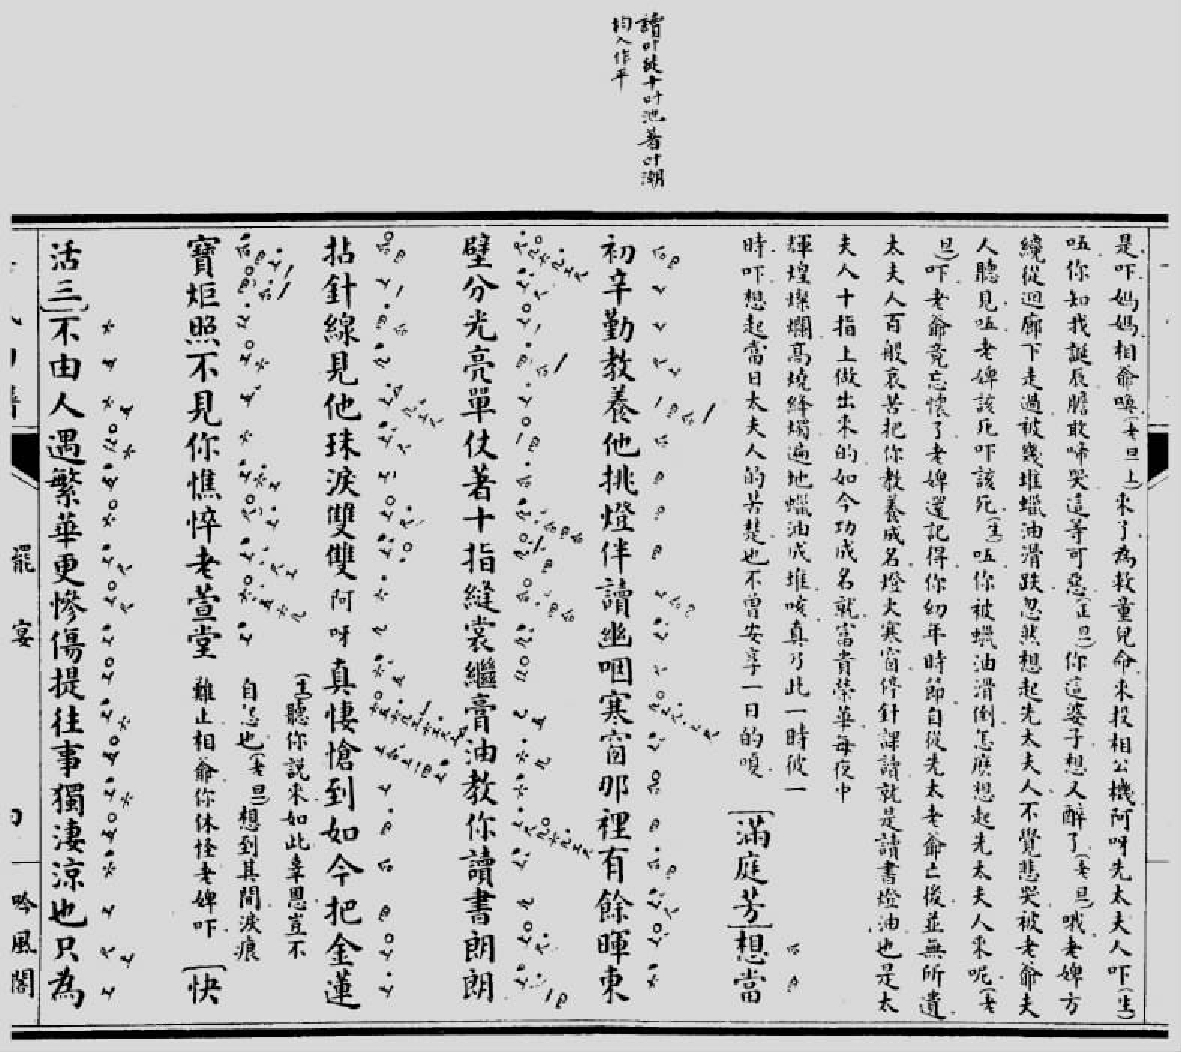 讀叶徒十叶池著叶潮
均入作平
是吓媽媽相爺喚(老旦上)來了為救童兒命來投相公機阿呀先太夫人吓(生)
呸你知我誕辰膽敢啼哭這等可惡(正旦)你這婆子想人醉了(老旦)哦老婢方
纔從迴廊下走過被幾堆蠟油滑跌忽然想起先太夫人不覺悲哭被老爺夫
人聽見呸老婢該死吓該死(生)呸你被蠟油滑倒怎麽想起先太夫人來呢(老
旦)吓老爺竟忘懷了老婢還記得你幼年時節自從先太老爺亡後並無所遺
太夫人百般哀苦把你教養成名燈火寒窗停針課讀就是讀書燈油也是太
夫人十指上做出來的如今功成名就富貴榮華每夜中
輝煌燦爛高燒絳燭遍地蠟油成堆咳真乃此一時彼一
時吓想起當日太夫人的苦楚也不曾安享一日的嗄
[滿庭芳]想當
初辛勤教養他挑燈伴讀幽咽寒窗那裡有餘暉東
壁分光亮單仗著十指縫裳繼膏油教你讀書朗朗
拈針線見他珠淚雙雙阿呀真悽愴到如今把金蓮
(生)聽你說來如此辜恩豈不
自忌也(老旦)想到其間淚痕
寶炬照不見你憔悴老萱堂
難止相爺你休怪老婢吓
[快
活三]不由人遇繁華更慘傷提往事獨淒涼也只為
罷宴
吟風閣